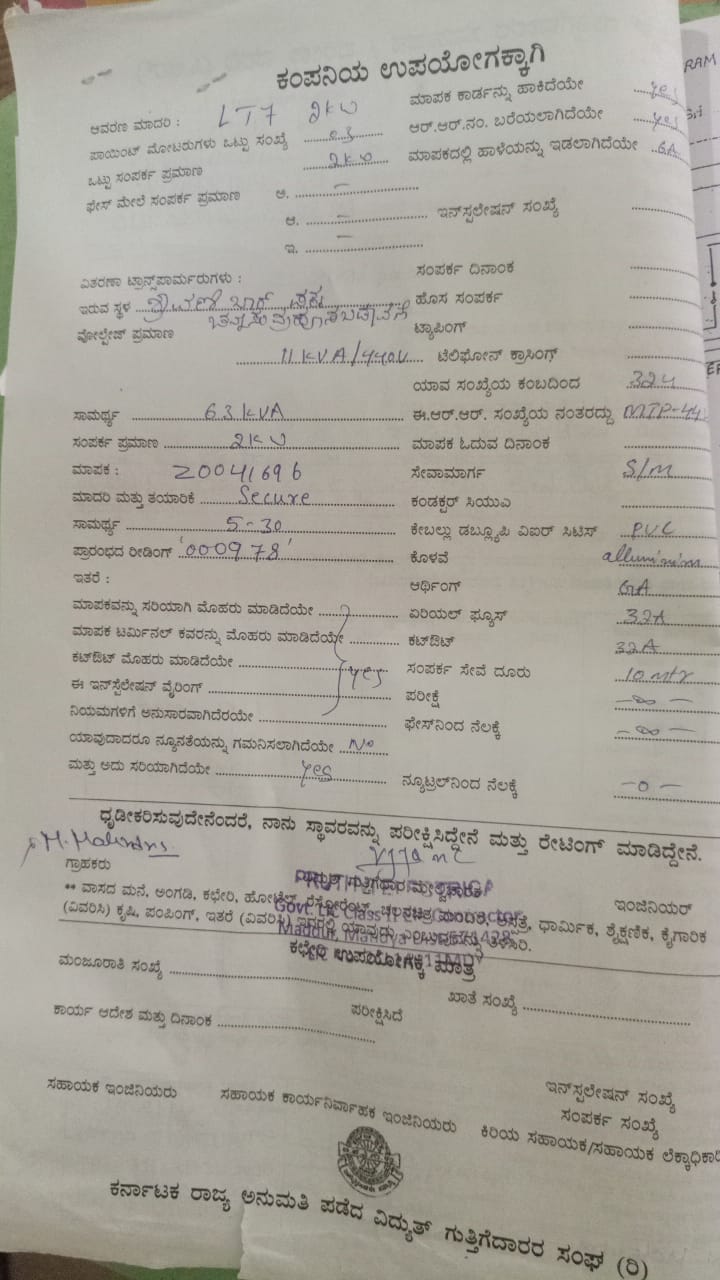 ಕಂಪನಿಯ ಉಪಯೋಗಕ್ಕಾಗಿ
ಆವರಣ ಮಾದರಿ : LT7 2kw
ಮಾಪಕ ಕಾರ್ಡನ್ನು ಹಾಕಿದೆಯೇ yes
ಪಾಯಿಂಟ್ ಮೋಟರುಗಳು ಒಟ್ಟು ಸಂಖ್ಯೆ 03
ಆರ್.ಆರ್.ನಂ. ಬರೆಯಲಾಗಿದೆಯೇ yes
ಒಟ್ಟು ಸಂಪರ್ಕ ಪ್ರಮಾಣ 2kw
ಮಾಪಕದಲ್ಲಿ ಹಾಳೆಯನ್ನು ಇಡಲಾಗಿದೆಯೇ
ಫೇಸ್ ಮೇಲೆ ಸಂಪರ್ಕ ಪ್ರಮಾಣ ಅ. –
ಆ. – ಇನ್‌ಸ್ಟಲೇಷನ್ ಸಂಖ್ಯೆ
ಇ. –
ವಿತರಣಾ ಟ್ರಾನ್ಸ್‌ಪಾರ್ಮರುಗಳು :
ಸಂಪರ್ಕ ದಿನಾಂಕ
ಇರುವ ಸ್ಥಳ
ಹೊಸ ಸಂಪರ್ಕ
ವೋಲ್ಟೇಜ್ ಪ್ರಮಾಣ 11 KVA/440V
ಟ್ಯಾಪಿಂಗ್
ಟೆಲಿಫೋನ್ ಕ್ರಾಸಿಂಗ್
ಯಾವ ಸಂಖ್ಯೆಯ ಕಂಬದಿಂದ 324
ಸಾಮರ್ಥ್ಯ 63 KVA
ಈ.ಆರ್.ಆರ್. ಸಂಖ್ಯೆಯ ನಂತರದ್ದು MTP-44
ಸಂಪರ್ಕ ಪ್ರಮಾಣ 2kw
ಮಾಪಕ ಓದುವ ದಿನಾಂಕ
ಮಾಪಕ : Z0041696
ಸೇವಾಮಾರ್ಗ S/M
ಮಾದರಿ ಮತ್ತು ತಯಾರಿಕೆ Secure
ಕಂಡಕ್ಟರ್ ಸಿಯುಎ
ಸಾಮರ್ಥ್ಯ 5-30
ಕೇಬಲ್ಲು ಡಬ್ಲ್ಯೂಪಿ ವಿಐರ್ ಸಿಟಿಸ್ PVC
ಪ್ರಾರಂಭದ ರೀಡಿಂಗ್ '000978'
ಕೊಳವೆ
ಇತರೆ :
ಆರ್ಥಿಂಗ್
ಮಾಪಕವನ್ನು ಸರಿಯಾಗಿ ಮೊಹರು ಮಾಡಿದೆಯೇ
ಏರಿಯಲ್ ಫ್ಯೂಸ್ 32A
ಮಾಪಕ ಟರ್ಮಿನಲ್ ಕವರನ್ನು ಮೊಹರು ಮಾಡಿದೆಯೇ
ಕಟ್‌ಔಟ್ 32A
ಕಟ್‌ಔಟ್ ಮೊಹರು ಮಾಡಿದೆಯೇ yes
ಸಂಪರ್ಕ ಸೇವೆ ದೂರು 10 mtr
ಈ ಇನ್‌ಸ್ಟೆಲೇಷನ್ ವೈರಿಂಗ್
ಪರೀಕ್ಷೆ -∞-
ನಿಯಮಗಳಿಗೆ ಅನುಸಾರವಾಗಿದೆರಯೇ
ಫೇಸ್‌ನಿಂದ ನೆಲಕ್ಕೆ -∞-
ಯಾವುದಾದರೂ ನ್ಯೂನತೆಯನ್ನು ಗಮನಿಸಲಾಗಿದೆಯೇ No
ಮತ್ತು ಅದು ಸರಿಯಾಗಿದೆಯೇ yes
ನ್ಯೂಟ್ರಲ್‌ನಿಂದ ನೆಲಕ್ಕೆ -0-
ಧೃಡೀಕರಿಸುವುದೇನೆಂದರೆ, ನಾನು ಸ್ಥಾವರವನ್ನು ಪರೀಕ್ಷಿಸಿದ್ದೇನೆ ಮತ್ತು ರೇಟಿಂಗ್ ಮಾಡಿದ್ದೇನೆ.
ಗ್ರಾಹಕರು
ಇಂಜಿನಿಯರ್
** ವಾಸದ ಮನೆ, ಅಂಗಡಿ, ಕಛೇರಿ, ಹೋಟೆಲ್, ರೆಸ್ಟೋರೆಂಟ್, ಚಲನಚಿತ್ರ ಮಂದಿರ, ಆಸ್ಪತ್ರೆ, ಧಾರ್ಮಿಕ, ಶೈಕ್ಷಣಿಕ, ಕೈಗಾರಿಕ
(ವಿವರಿಸಿ) ಕೃಷಿ, ಪಂಪಿಂಗ್, ಇತರೆ (ವಿವರಿಸಿ) ಇದರಲ್ಲಿ ಯಾವುದು ಎಂಬುದನ್ನು ತಿಳಿಸಿರಿ.
ಕಛೇರಿ ಉಪಯೋಗಕ್ಕೆ ಮಾತ್ರ
ಮಂಜೂರಾತಿ ಸಂಖ್ಯೆ
ಖಾತೆ ಸಂಖ್ಯೆ
ಕಾರ್ಯ ಆದೇಶ ಮತ್ತು ದಿನಾಂಕ
ಪರೀಕ್ಷಿಸಿದೆ
ಇನ್‌ಸ್ಟಲೇಷನ್ ಸಂಖ್ಯೆ
ಸಂಪರ್ಕ ಸಂಖ್ಯೆ
ಸಹಾಯಕ ಇಂಜಿನಿಯರು ಸಹಾಯಕ ಕಾರ್ಯನಿರ್ವಾಹಕ ಇಂಜಿನಿಯರು ಕಿರಿಯ ಸಹಾಯಕ/ಸಹಾಯಕ ಲೆಕ್ಕಾಧಿಕಾರಿ
ಕರ್ನಾಟಕ ರಾಜ್ಯ ಅನುಮತಿ ಪಡೆದ ವಿದ್ಯುತ್ ಗುತ್ತಿಗೆದಾರರ ಸಂಘ (ರಿ)